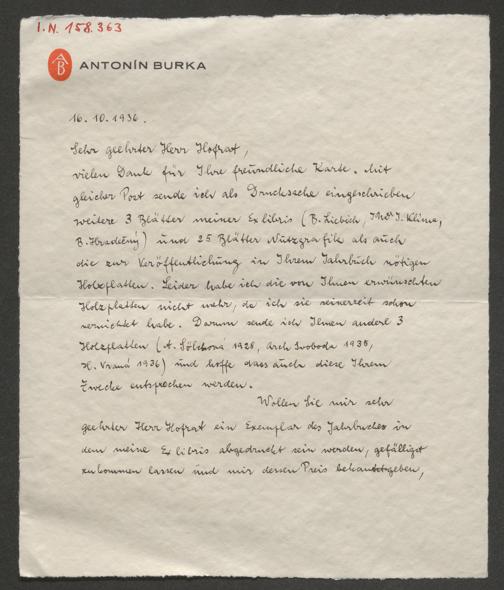 I.N. 158.363
AB
ANTONÍN BURKA
16. 10. 1936.
Sehr geehrter Herr Hofrat,
vielen Dank für Ihre freundliche Karte. Mit
gleicher Post sende ich als Drucksache eingeschrieben
weitere 3 Blätter meiner Exlibris (B. Liebich, J. Klíma,
B. Hradečný) und 25 Blätter Nutzgrafik als auch
die zur Veröffentlichung in Ihrem Jahrbuch nötigen
Holzplatten. Leider habe ich die von Ihnen erwünschten
Holzplatten nicht mehr, da ich sie seinerzeit schon
vernichtet habe. Darum sende ich Ihnen andere 3
Holzplatten (A. 1928, Arch Svoboda 1935,
Vraná 1936) und hoffe dass auch diese Ihrem
Zwecke entsprechen werden.
Wollen Sie mir sehr
geehrter Herr Hofrat ein Exemplar des Jahrbuches in
dem meine Exlibris abgedruckt sein werden, gefälligst
zukommen lassen und mir dessen Preis bekanntgeben,